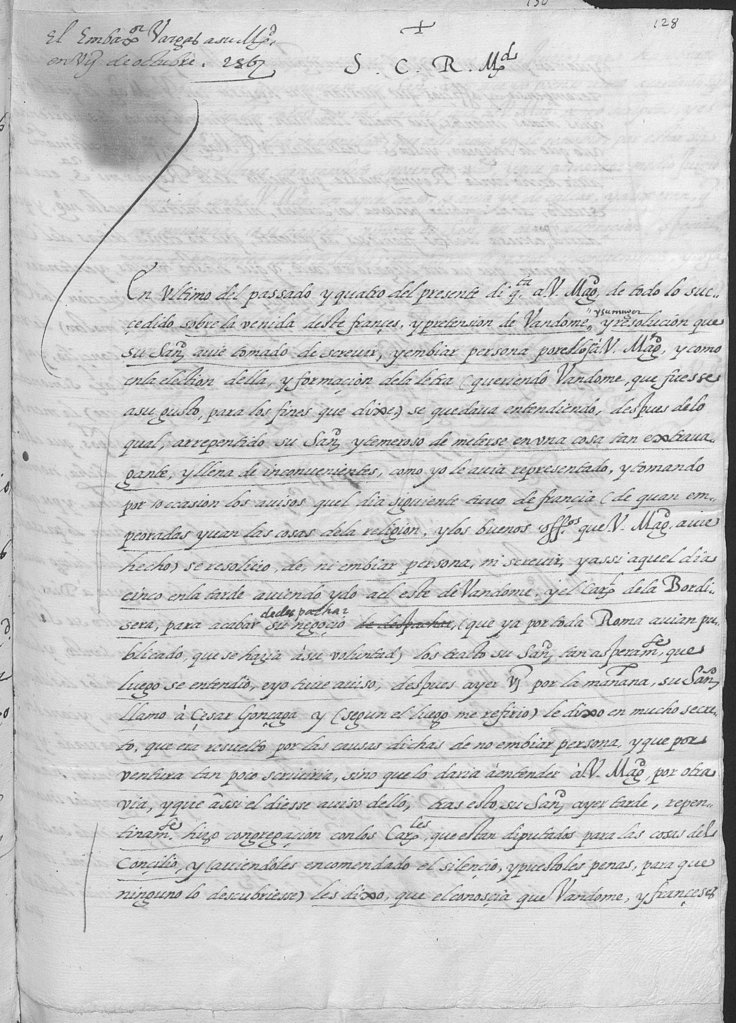 128
El Emba.or Vargas a su Mg.d
en vij de octubre. 1561
+
S. C. R. M.d
En ultimo del passado y quatro del presente di q.ta a V. Mag.d de todo lo suc-
cedido sobre la venida deste frances, y pretension de Vandome, y resolucion que
su San.d avie tomado de screvir, y embiar persona por ello a V. Mag.d, y como
en la election della, y formaçion de la letra (queriendo Vandome, que fuesse
a su gusto, para los fines que dixe) se quedava entendiendo, despues de lo
qual, arrepentido su San.d y temeroso de meterse en una cosa tan extrava-
gante, y llena de inconvenientes, como yo le avia representado, y tomando
por occasion los avisos quel dia siguiente tuvo de francia (de quan em-
peoradas yuan las cosas de la religion, y los buenos off.os que V. Mag.d avie
hecho) se resolvio, de, ni embiar persona, ni screvir, y assi aquel dia
cinco en la tarde aviendo ydo aci este de Vandome, y el Car.l de la Bordi-
sera, para acabar de despachar su negoçio de despachar, (que ya por toda Roma avian pu-
blicado, que se hazia à su voluntad) los trato su San.d tan asperam.te, que
luego se entendio, e yo tuve aviso, despues ayer vj por la mañana, su San.d
llamo à Cesar Gonçaga y (segun el luego me refirio) le dixo en mucho secre-
to, que era resuelto por las causas dichas de no embiar persona, y que por
ventura tan poco scriviria, sino que lo daria à entender à V. Mag.d por otra
via, y que assi el diesse aviso dello, tras esto su San.d ayer tarde, repen-
tinam.te hizo congregaçion con los Car.les que estan diputados para las cosas del
Conçilio, y (aviendoles encomendado el silencio, y puestoles penas, para que
ninguno lo descubriesse) les dixo, que el conosçia que Vandome, y françeses